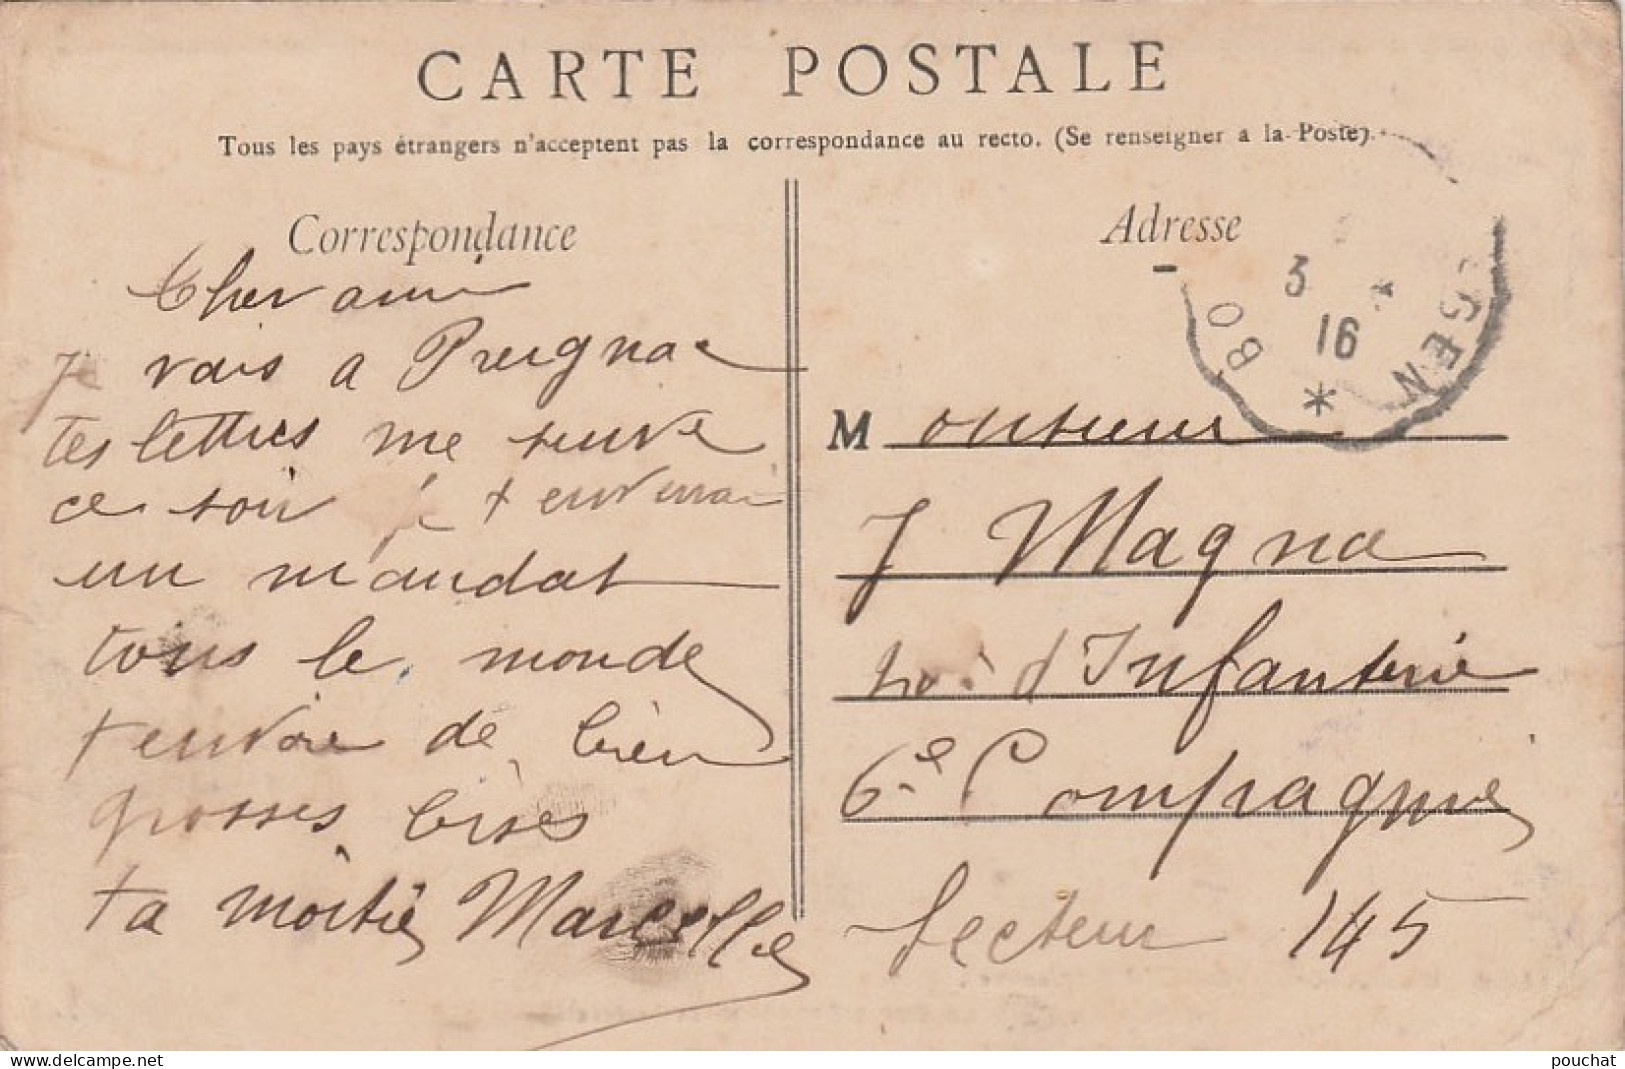 CARTE POSTALE
Tous les pays étrangers n'acceptent pas la correspondance au recto. (Se renseigner a la Poste).
Correspondance
Cher ami
Je vais a Preignac
tes lettres me suive
ce soir je t enverrai
un mandat
tous le monde
t envoie de bien
grosses bises
ta moitié Marcelle
Adresse
BO GEN
3
16
*
Monsieur
J Magna
d'Infanterie
6e Compagnie
Secteur 145
delcampe.net
pouchat